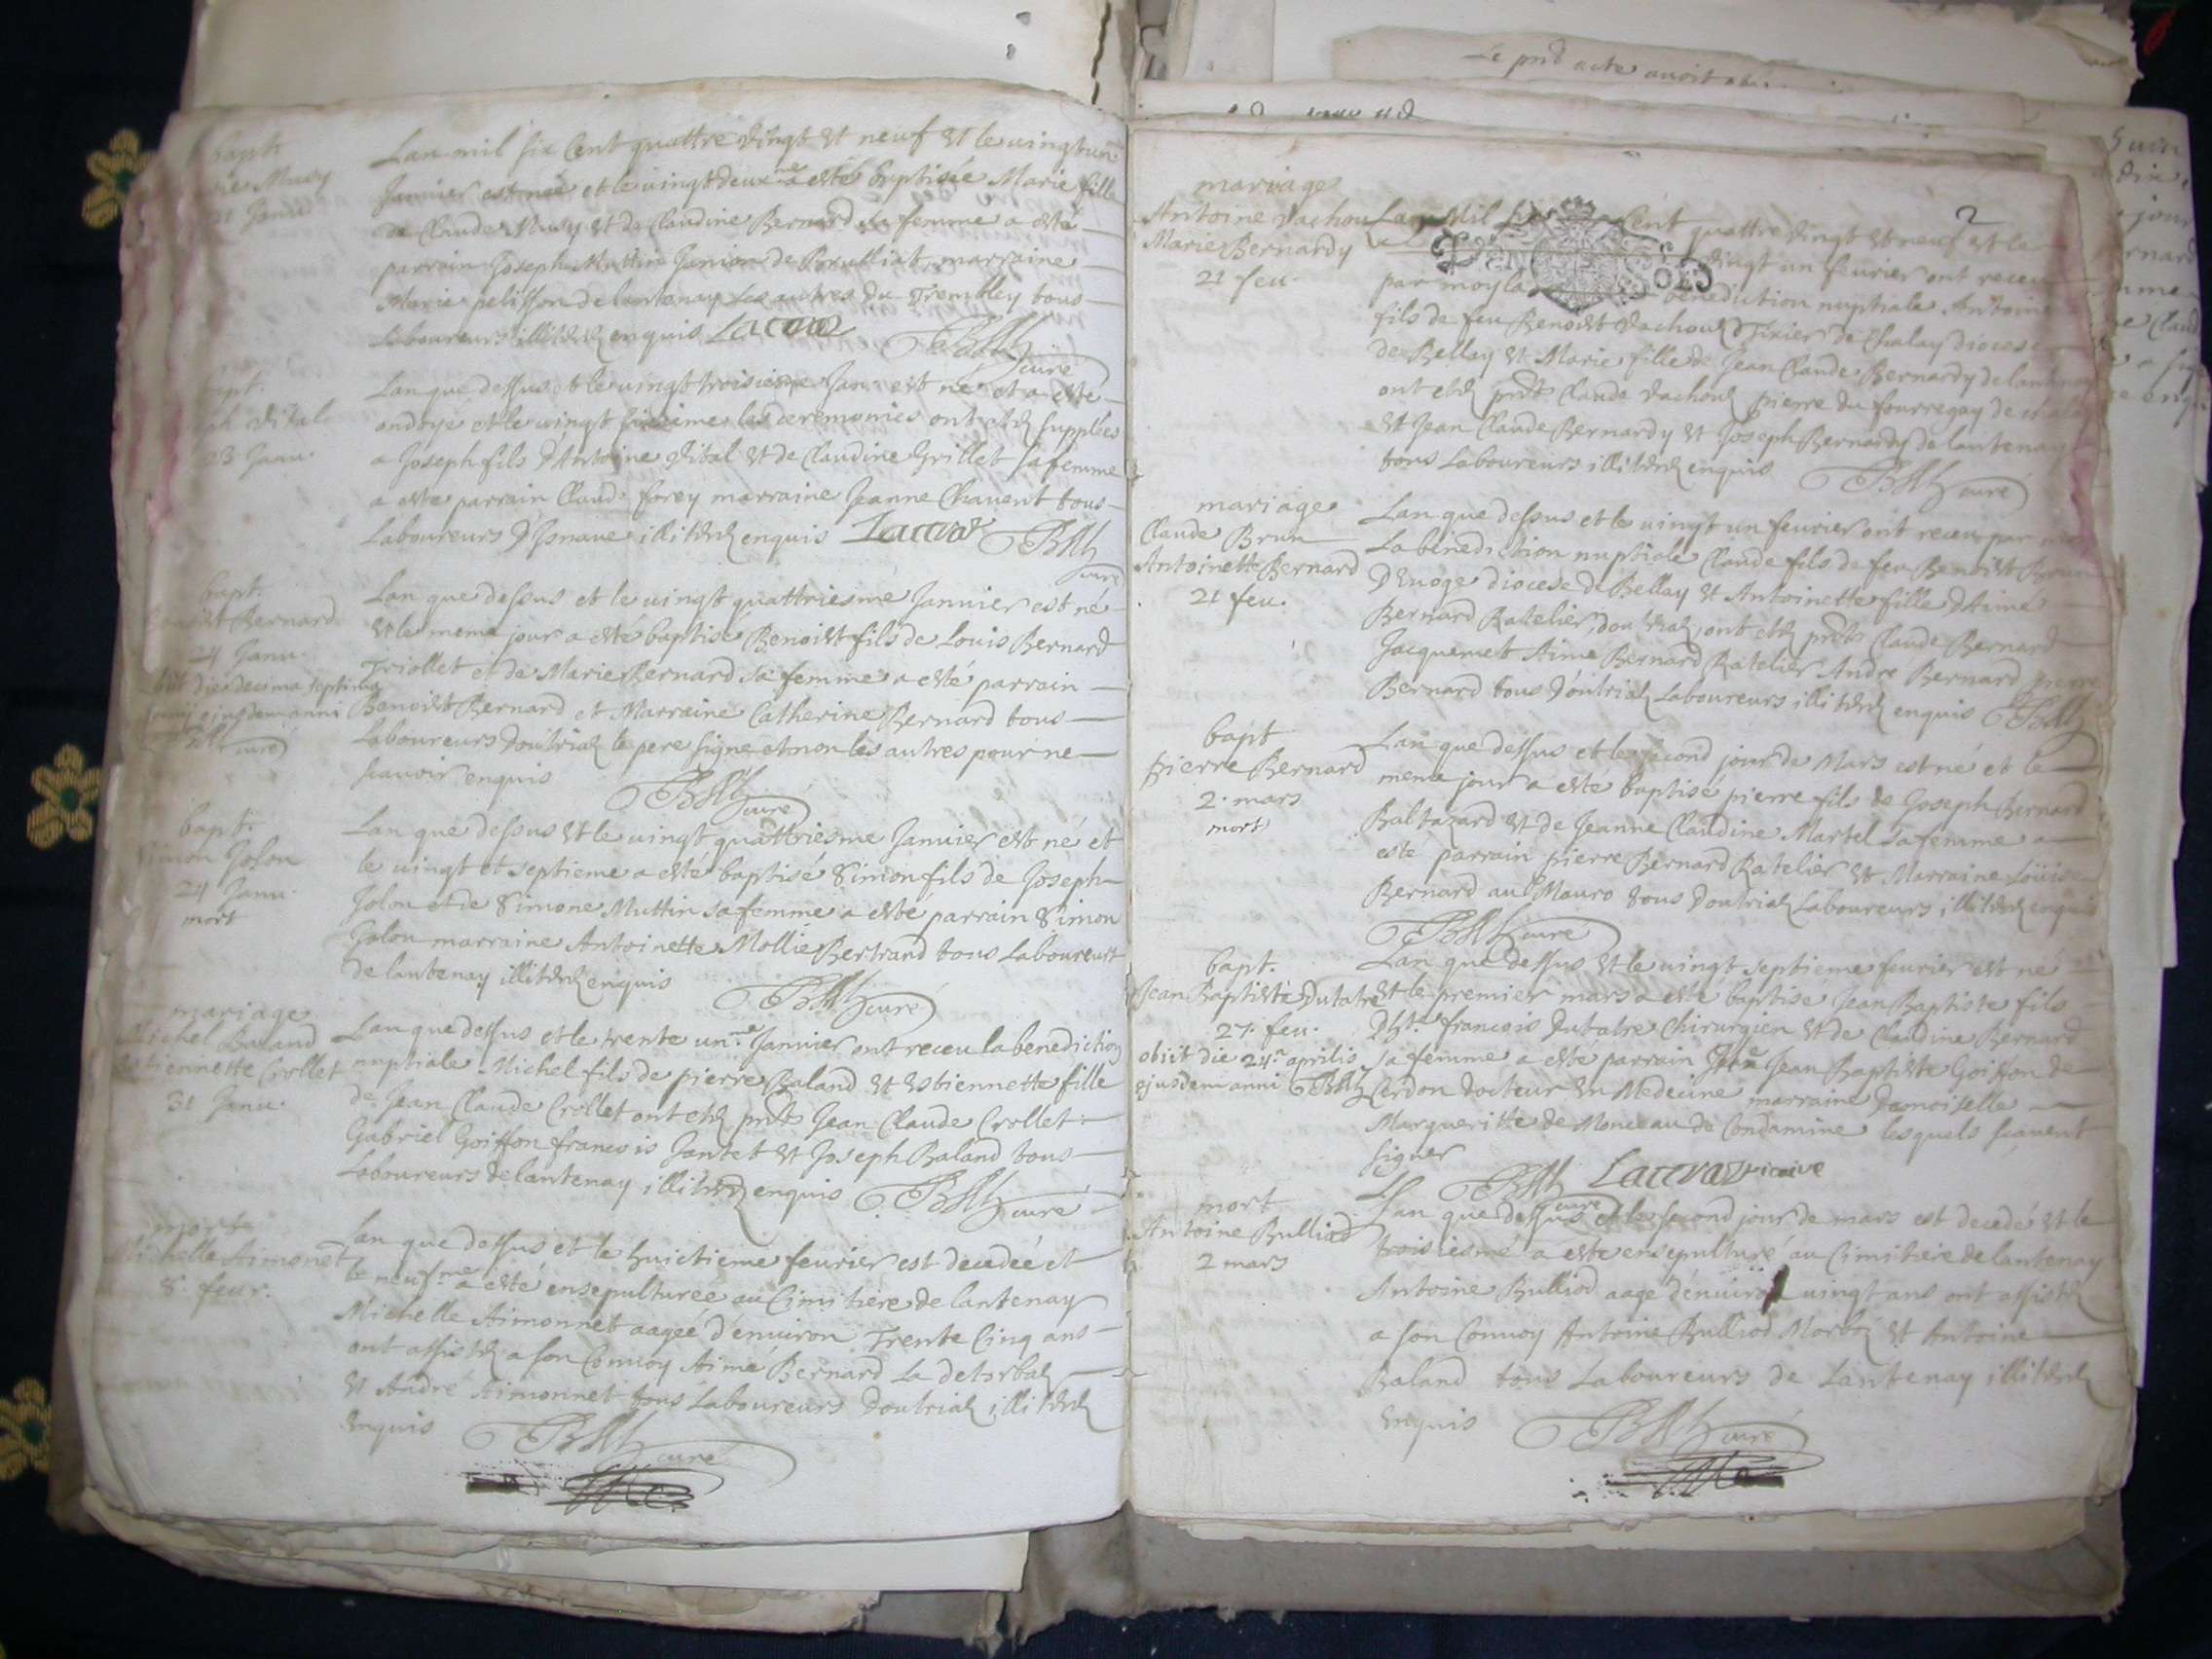 Le pnt acte avoit
bapt.
Musy
21 Janu.
Lan mil six Cent quattre vingt et neuf et le vingtun
Janvier est née et le vingtdeux.me a esté baptisée Marie fille
de Claude Musy et de Claudine Bernard sa femme a esté
parrain Joseph Muttin Janion de marraine
Marie pelisson de lantenay Les autres du Trembley tous
Laboureurs illiterez enquis
curé
bapt.
vital
23 Janu.
Lan que dessus et le vingt troisieme Jan. est né et a esté
ondoye et le vingt sixieme les ceremonies ont etez supplées
a Joseph fils d'Antoine vital et de Claudine Grillet sa femme
a esté parrain Claude forey marraine Jeanne Chavent tous
Laboureurs d'Isnave illiterez enquis
curé
bapt.
Benoist Bernard
24 Janu.
obiit die decima septima
ejusdem anni
curé
Lan que dessus et le vingt quattriesme Janvier est né
et le meme jour a esté baptisé Benoist fils de Louis Bernard
Triollet et de Marie Bernard sa femme a esté parrain
Benoist Bernard et Marraine Catherine Bernard tous
Laboureurs doutriaz le pere signe et non les autres pour ne
scavoir enquis
curé
bapt.
Simon Jolon
24 Janu.
mort
Lan que dessus et le vingt quattriesme Janvier est né et
le vingt et septieme a esté baptisé Simon fils de Joseph
Jolon et de Simone Muttin sa femme a esté parrain Simon
Jolon marraine Antoinette Mollie Bertrand tous Laboureurs
de lantenay illiterez enquis
curé
mariage
Michel Baland
Estiennette Crollet
31 Janu.
Lan que dessus et le trente un.me Janvier ont receu la benediction
nuptiale Michel fils de pierre Baland et Estiennette fille
de Jean Claude Crollet ont etez pnts Jean Claude Crollet
Gabriel Goiffon francois Jantet et Joseph Baland tous
Laboureurs de lantenay illiterez enquis
curé
morte
Michelle Aimonet
8. feur.
Lan que dessus et le huictieme feurier est decedée et
le neuf.me a esté ensepulturée au Cimitiere de lantenay
Michelle Aimonnet aagée d'environ Trente Cinq ans
ont assistez a son Convoy Aimé Bernard La detorbaz
et André Aimonnet tous Laboureurs doutriaz illiterez
enquis
curé
2
mariage
Antoine vachouz
Marie Bernardy
21 feu.
Lan Mil six Cent quattre vingt et neuf et le
vingt un feurier ont receu
par moy la benediction nuptiale Antoine
fils de feu Benoist vachouz Tixier de Chalay diocese
de Bellay et Marie fille de Jean Claude Bernardy de lantenay
ont etez pnts Claude vachouz pierre du fourregay de
et Jean Claude Bernardy et Joseph Bernardy de lantenay
tous Laboureurs illiterez enquis
curé
mariage
Claude Brun
Antoinette Bernard
21 feu.
Lan que dessus et le vingt un feurier ont receu par moy
La benediction nuptiale Claude fils de feu Benoist Brun
d'Evoge diocese de Bellay et Antoinette fille d'Aimé
Bernard Ratelier doutriaz, ont etez pnts Claude Bernard
Jacquemet Aime Bernard Ratelier André Bernard pierre
Bernard tous d'outriaz Laboureurs illiterez enquis
bapt
pierre Bernard
2. mars
mort
Lan que dessus et le second jour de Mars est né et le
meme jour a esté baptisé pierre fils de Joseph Bernard
Baltazard et de Jeanne Claudine Martel sa femme a
esté parrain pierre Bernard Ratelier et Marraine Louise
Bernard au Mauro tous doutriaz Laboureurs illiterez enquis
curé
bapt.
Jean Baptiste Dutatre
27. feu.
obiit die 24.a aprilis
ejusdem anni
Lan que dessus et le vingt septieme feurier est né
et le premier mars a esté baptisé Jean Baptiste fils
francois Dutatre Chirurgien et de Claudine Bernard
sa femme a esté parrain Jean Baptiste Goiffon de
Cerdon docteur en Medecine marraine Damoiselle
Marguerite de Monceau de Condamine lesquels scavent
signer
vicaire
curé
mort
Antoine Bulliod
2 mars
Lan que dessus et le second jour de mars est decedé et le
troisiesme a esté ensepulturé au Cimitiere de lantenay
Antoine Bulliod aagé d'environ vingt ans ont assistez
a son Convoy Antoine Bulliod et Antoine
Baland tous Laboureurs de Lantenay illiterez
enquis
curé